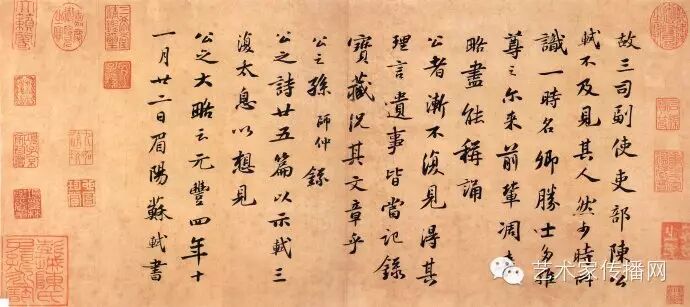 故三司副使吏部陳公
軾不及見其人然少時所
識一時名卿勝士多推
尊之尔來前輩凋喪
略盡能稱誦
公者漸不復見得其
理言遺事皆當記錄
寶藏況其文章乎
公之孫師仲錄
公之詩廿五篇以示軾三
復太息以想見
公之大略云元豐四年十
一月廿二日眉陽蘇軾書
艺术家传播网